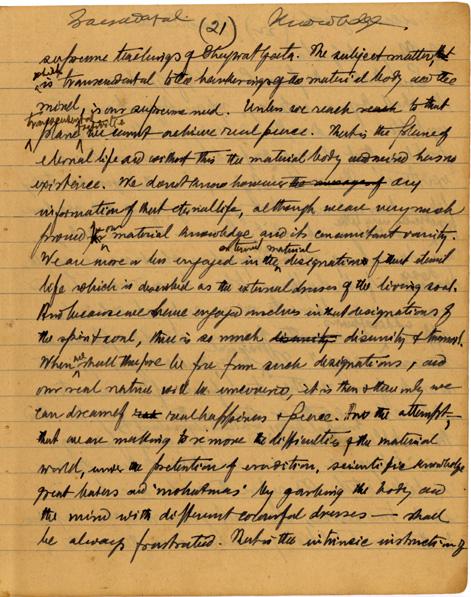 Transcendental (21) Knowledge
supreme teachings of Bhagwat Geeta. The subject matter,
which is transcendental to the hankerings of the material body and the
mind, is our supreme need. Unless we reach reach to that
transcendental plane we cannot achieve real peace. That is the plane of
eternal life and without this the material body and mind has no
existence. We do not know however the message of any
information of that eternal life, although we are very much
proud for our material knowledge and its concomitant variety.
We are more or less engaged in the external material designations of that eternal
life which is described as the external dresses of the living soul.
And because we have engaged ourselves in that designations of
the spirit soul, there is so much disunity disunity & turmoil.
When we shall therefore be free from such designations, and
our real nature will be uncovered, it is then & there only we
can dream of real real happiness & peace. And the attempt,
that we are making to remove the difficulties of the material
world, under the pretention of erudition, scientific knowledge
great leaders and 'mohatmas' by garbing the body and
the mind with different colourful dresses — shall
be always frustrated. That is the intrinsic instruction of